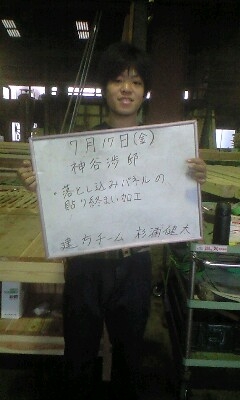 7月17日(金)
神谷渉 邸
・落とし込みパネルの
貼り終まい加工
建方チーム 杉浦健太